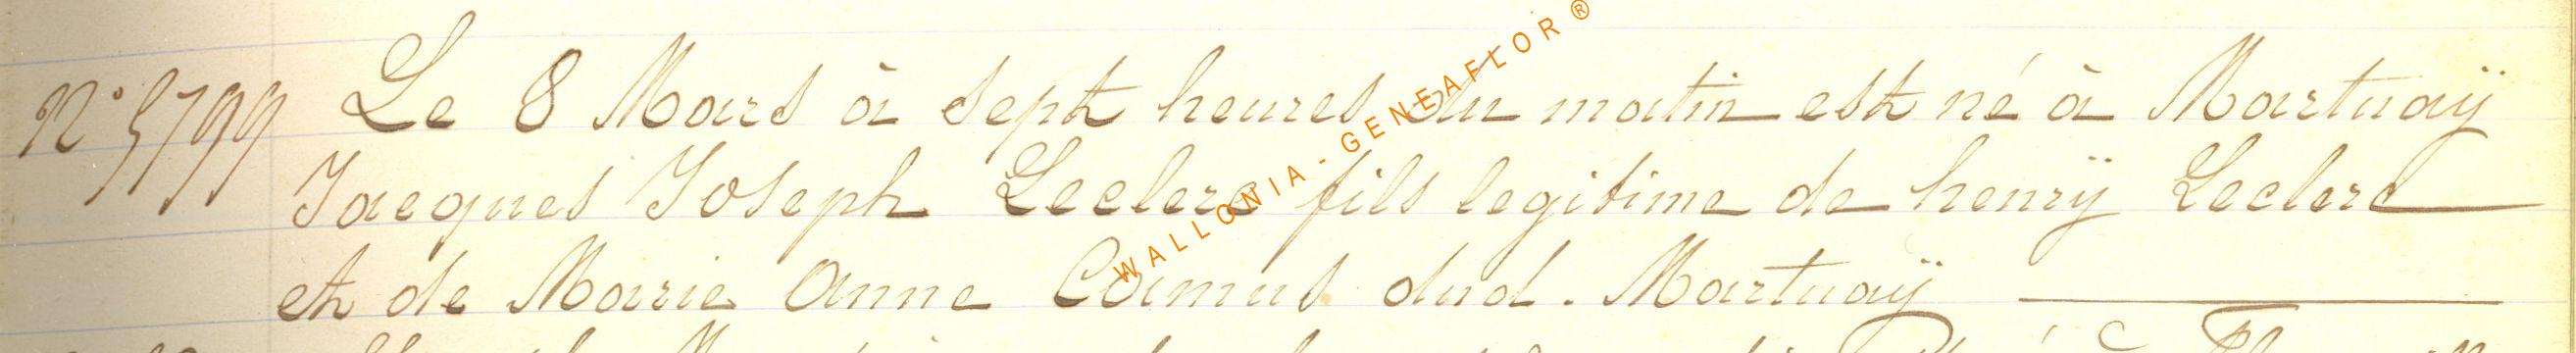 N° 5799 Le 8 Mars à sept heures du matin est né à Martuaÿ
Jacques Joseph Leclerc fils legitime de henrÿ Leclerc
et de Marie Anne Camus dud. Martuaÿ
WALLONIA - GENEAFLOR ®